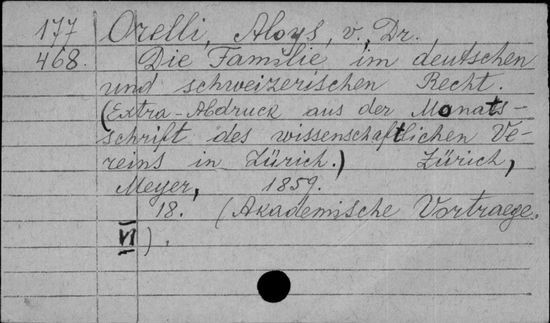 177 Orelli, Aloys, v., Dr.
468. Die Familie im deutschen
und schweizerischen Recht.
(Extra-Abdruck aus der Monats-
schrift des wissenschaftlichen Ve-
reins in Zürich.) Zürich,
Meyer, 1859.
18. (Akademische Vortraege.
VI).